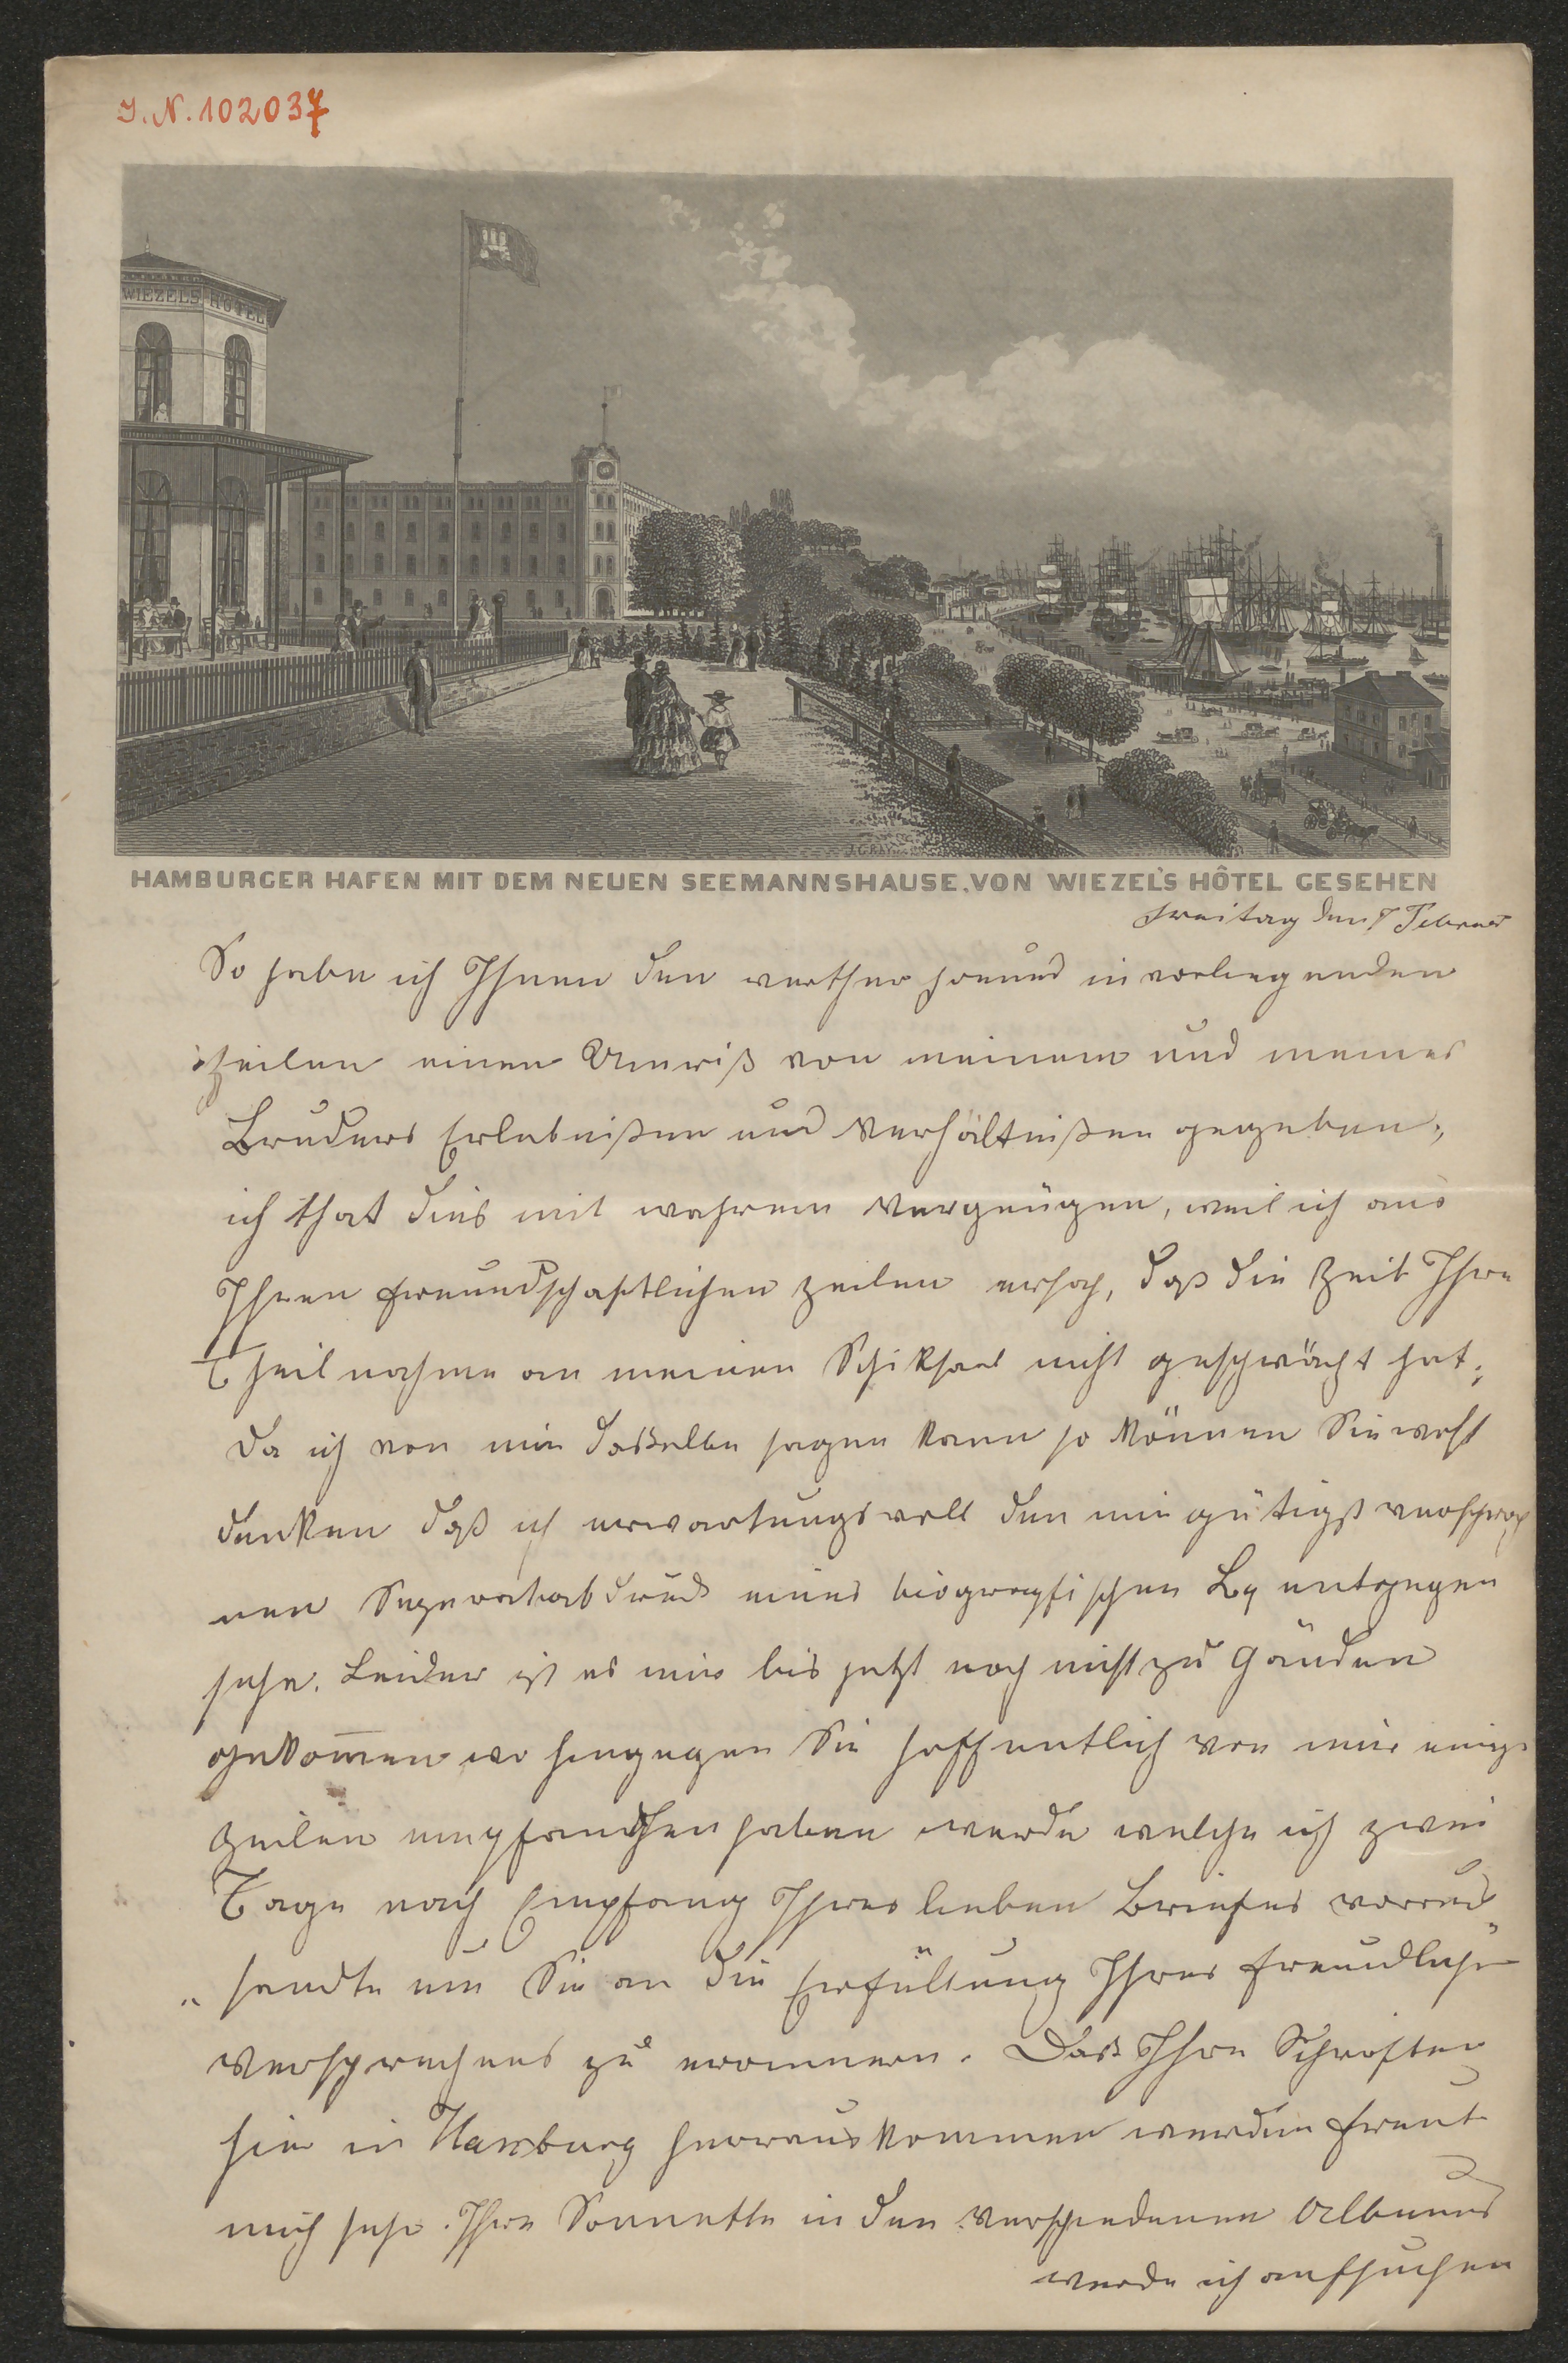 I.N. 102037
WIEZELS HOTEL
HAMBURGER HAFEN MIT DEM NEUEN SEEMANNSHAUSE, VON WIEZEL'S HÔTEL GESEHEN
Freitag den Februar
So habe ich Ihnen den werther Freund in vorliegenden
Zeilen einen Umriß von meinem und meines
Bruders Erlebnißen und Verhältnißen gegeben,
ich that dies mit wahrem Vergnügen, weil ich aus
Ihren freundschaftlichen Zeilen ersah, daß die Zeit Ihre
Theilnahme an meinen Schiksaal nicht geschwächt hat;
da ich von mir dasselbe sagen kann so können Sie wohl
denken daß ich erwartungsvoll den mir gütigst versproch
nen Seperatabdruck eines biografischen entgegen
sehe. Leider ist es mir bis jetzt noch nicht zu Händen
gekommen wo hingegen Sie hoffentlich von mir einige
Zeilen empfangen haben werde welche ich zwei
Tage nach Empfang Ihres lieben Briefes
sandte um Sie an die Erfüllung Ihres freundlichen
Versprechens zu erinnern. Daß Ihre Schriften
hier in Hamburg herauskommen werden freut
mich sehr. Ihre Sonnette in den verschiedenen Albums
werde ich aufsuchen